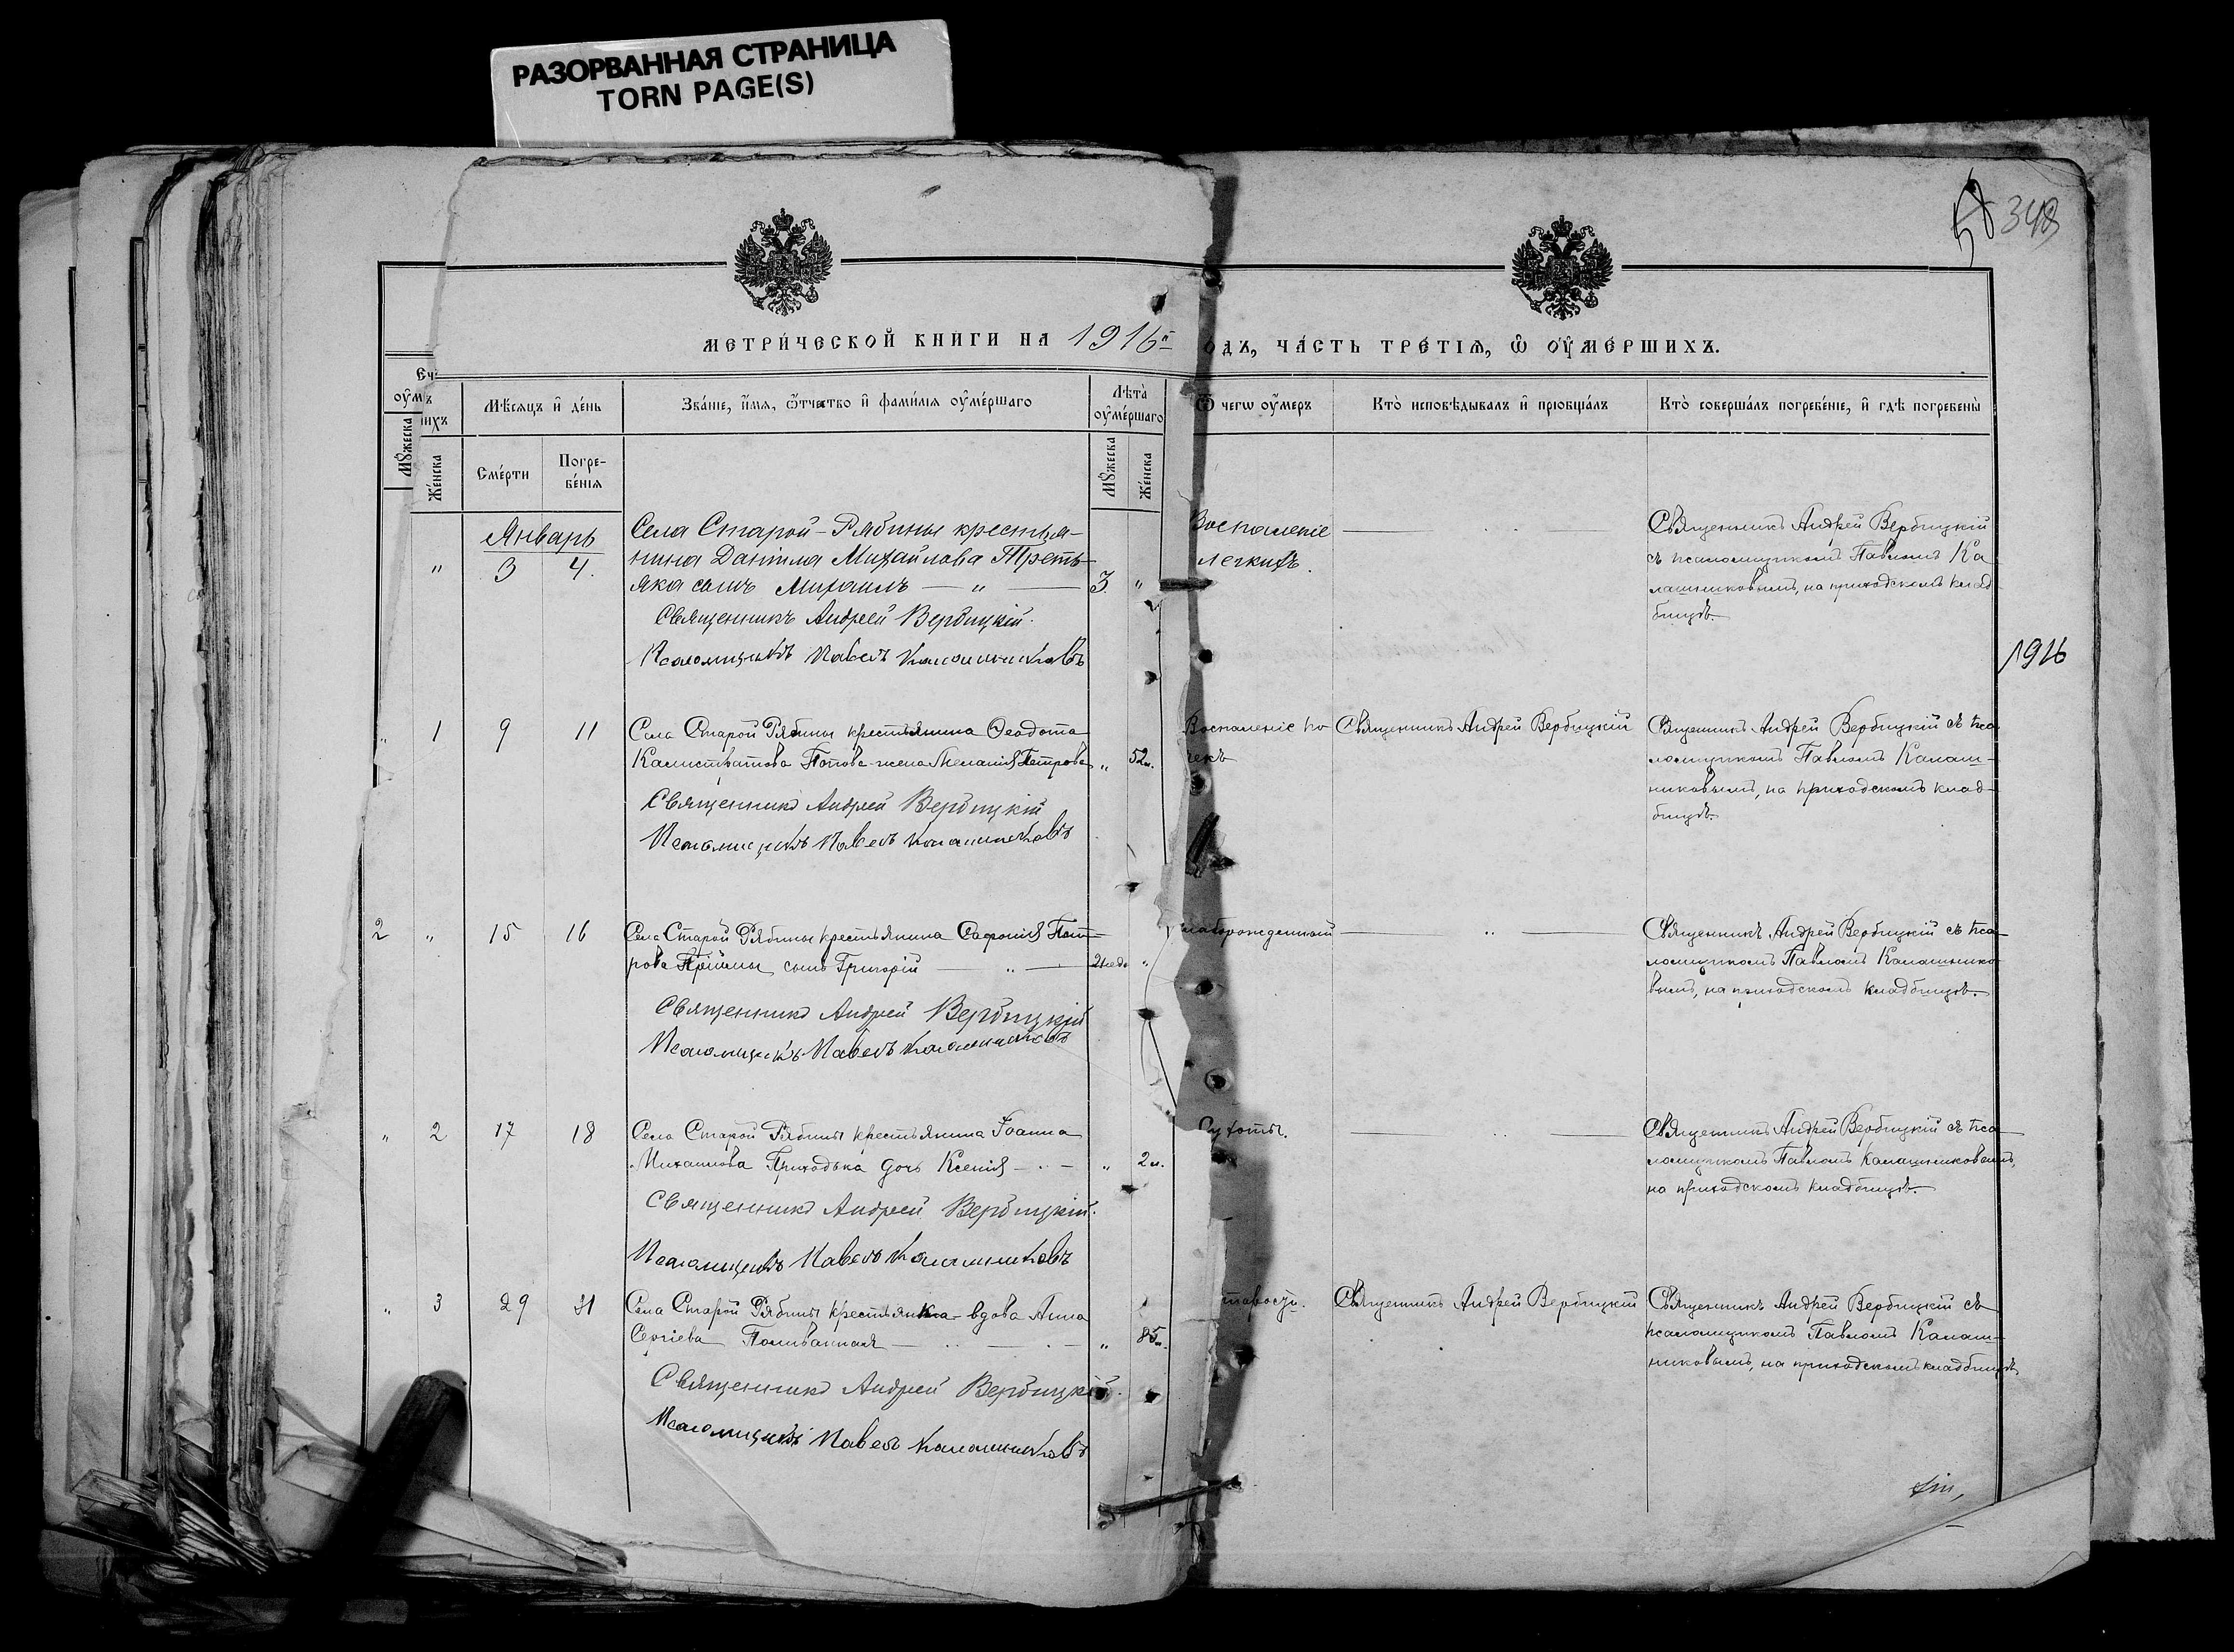 РАЗОРВАННАЯ СТРАНИЦА
TORN PAGE(S)
348
МЕТРИ́ЧЕСКОЙ КНИГИ НА 1916й
ОДЪ, ЧА́СТЬ ТРЕ́ТІѦ, Ѽ ОУ҆МЕ́РШИХЪ.
Мѣ́сѧцъ и҆ де́нь
Зва́ніе, и҆́мѧ, ѻ҆́тчество и҆ фами́лїѧ оу҆ме́ршаго
Лѣта̀
оу҆ме́ршаго
Ѿ чегѡ оу҆́меръ
Кто̀ исповѣ́дывалъ и҆ прїѡбща́лъ
Кто̀ соверша́лъ погребе́ніе, и҆ гдѣ̀ погребены̀
Мꙋ́жеска
Же́нска
Сме́рти
Погре-
бе́нїѧ
Мꙋ́жеска
Же́нска
Январь
" 3 4.
Села Старой-Рябины крестья-
нина Даніила Михайлова Треть-
яка сынъ Михаилъ — " —
3. "
Священникъ Андрей Вербицкій.
Псаломщикъ Павелъ Калашниковъ
Воспаленіе
легкихъ.
Священникъ Андрей Вербицкій
съ псаломщикомъ Павломъ Ка
лашниковымъ, на приходскомъ клад
бищѣ.
1916
" 1 9 11
Села Старой Рябины крестьянина Ѳеодота
Калистратова Попова жена Меланія Петрова
" 52л.
Священникъ Андрей Вербицкій
Псаломщикъ Павелъ Калашниковъ
Воспаленіе по
чекъ
Священникъ Андрей Вербицкій
Священникъ Андрей Вербицкій съ пса
ломщикомъ Павломъ Калаш-
никовымъ, на приходскомъ клад-
бищѣ.
2 " 15 16
Села Старой Рябины крестьянина Сафонія
сынъ Григорій — " —
2 нед. "
Священникъ Андрей Вербицкій
Псаломщикъ Павелъ Калашниковъ
— " —
Священникъ Андрей Вербицкій съ пса-
ломщикомъ Павломъ Калашнико
вымъ, на приходскомъ кладбищѣ.
" 2 17 18
Села Старой Рябины крестьянина Іоанна
Михаилова Приходька дочь Ксенія — " —
" 2 л.
Священникъ Андрей Вербицкій.
Псаломщикъ Павелъ Калашниковъ
Сухоты.
— " —
Священникъ Андрей Вербицкій съ пса-
ломщикомъ Павломъ Калашниковымъ,
на приходскомъ кладбищѣ.
" 3 29 31
Села Старой Рябины крестьянка-вдова Анна
Сергіева Поливанная — " —
" 85л.
Священникъ Андрей Вербицкій.
Псаломщикъ Павелъ Калашниковъ
тарости.
Священникъ Андрей Вербицкій
Священникъ Андрей Вербицкій съ
псаломщикомъ Павломъ Калаш-
никовымъ, на приходскомъ кладбищѣ